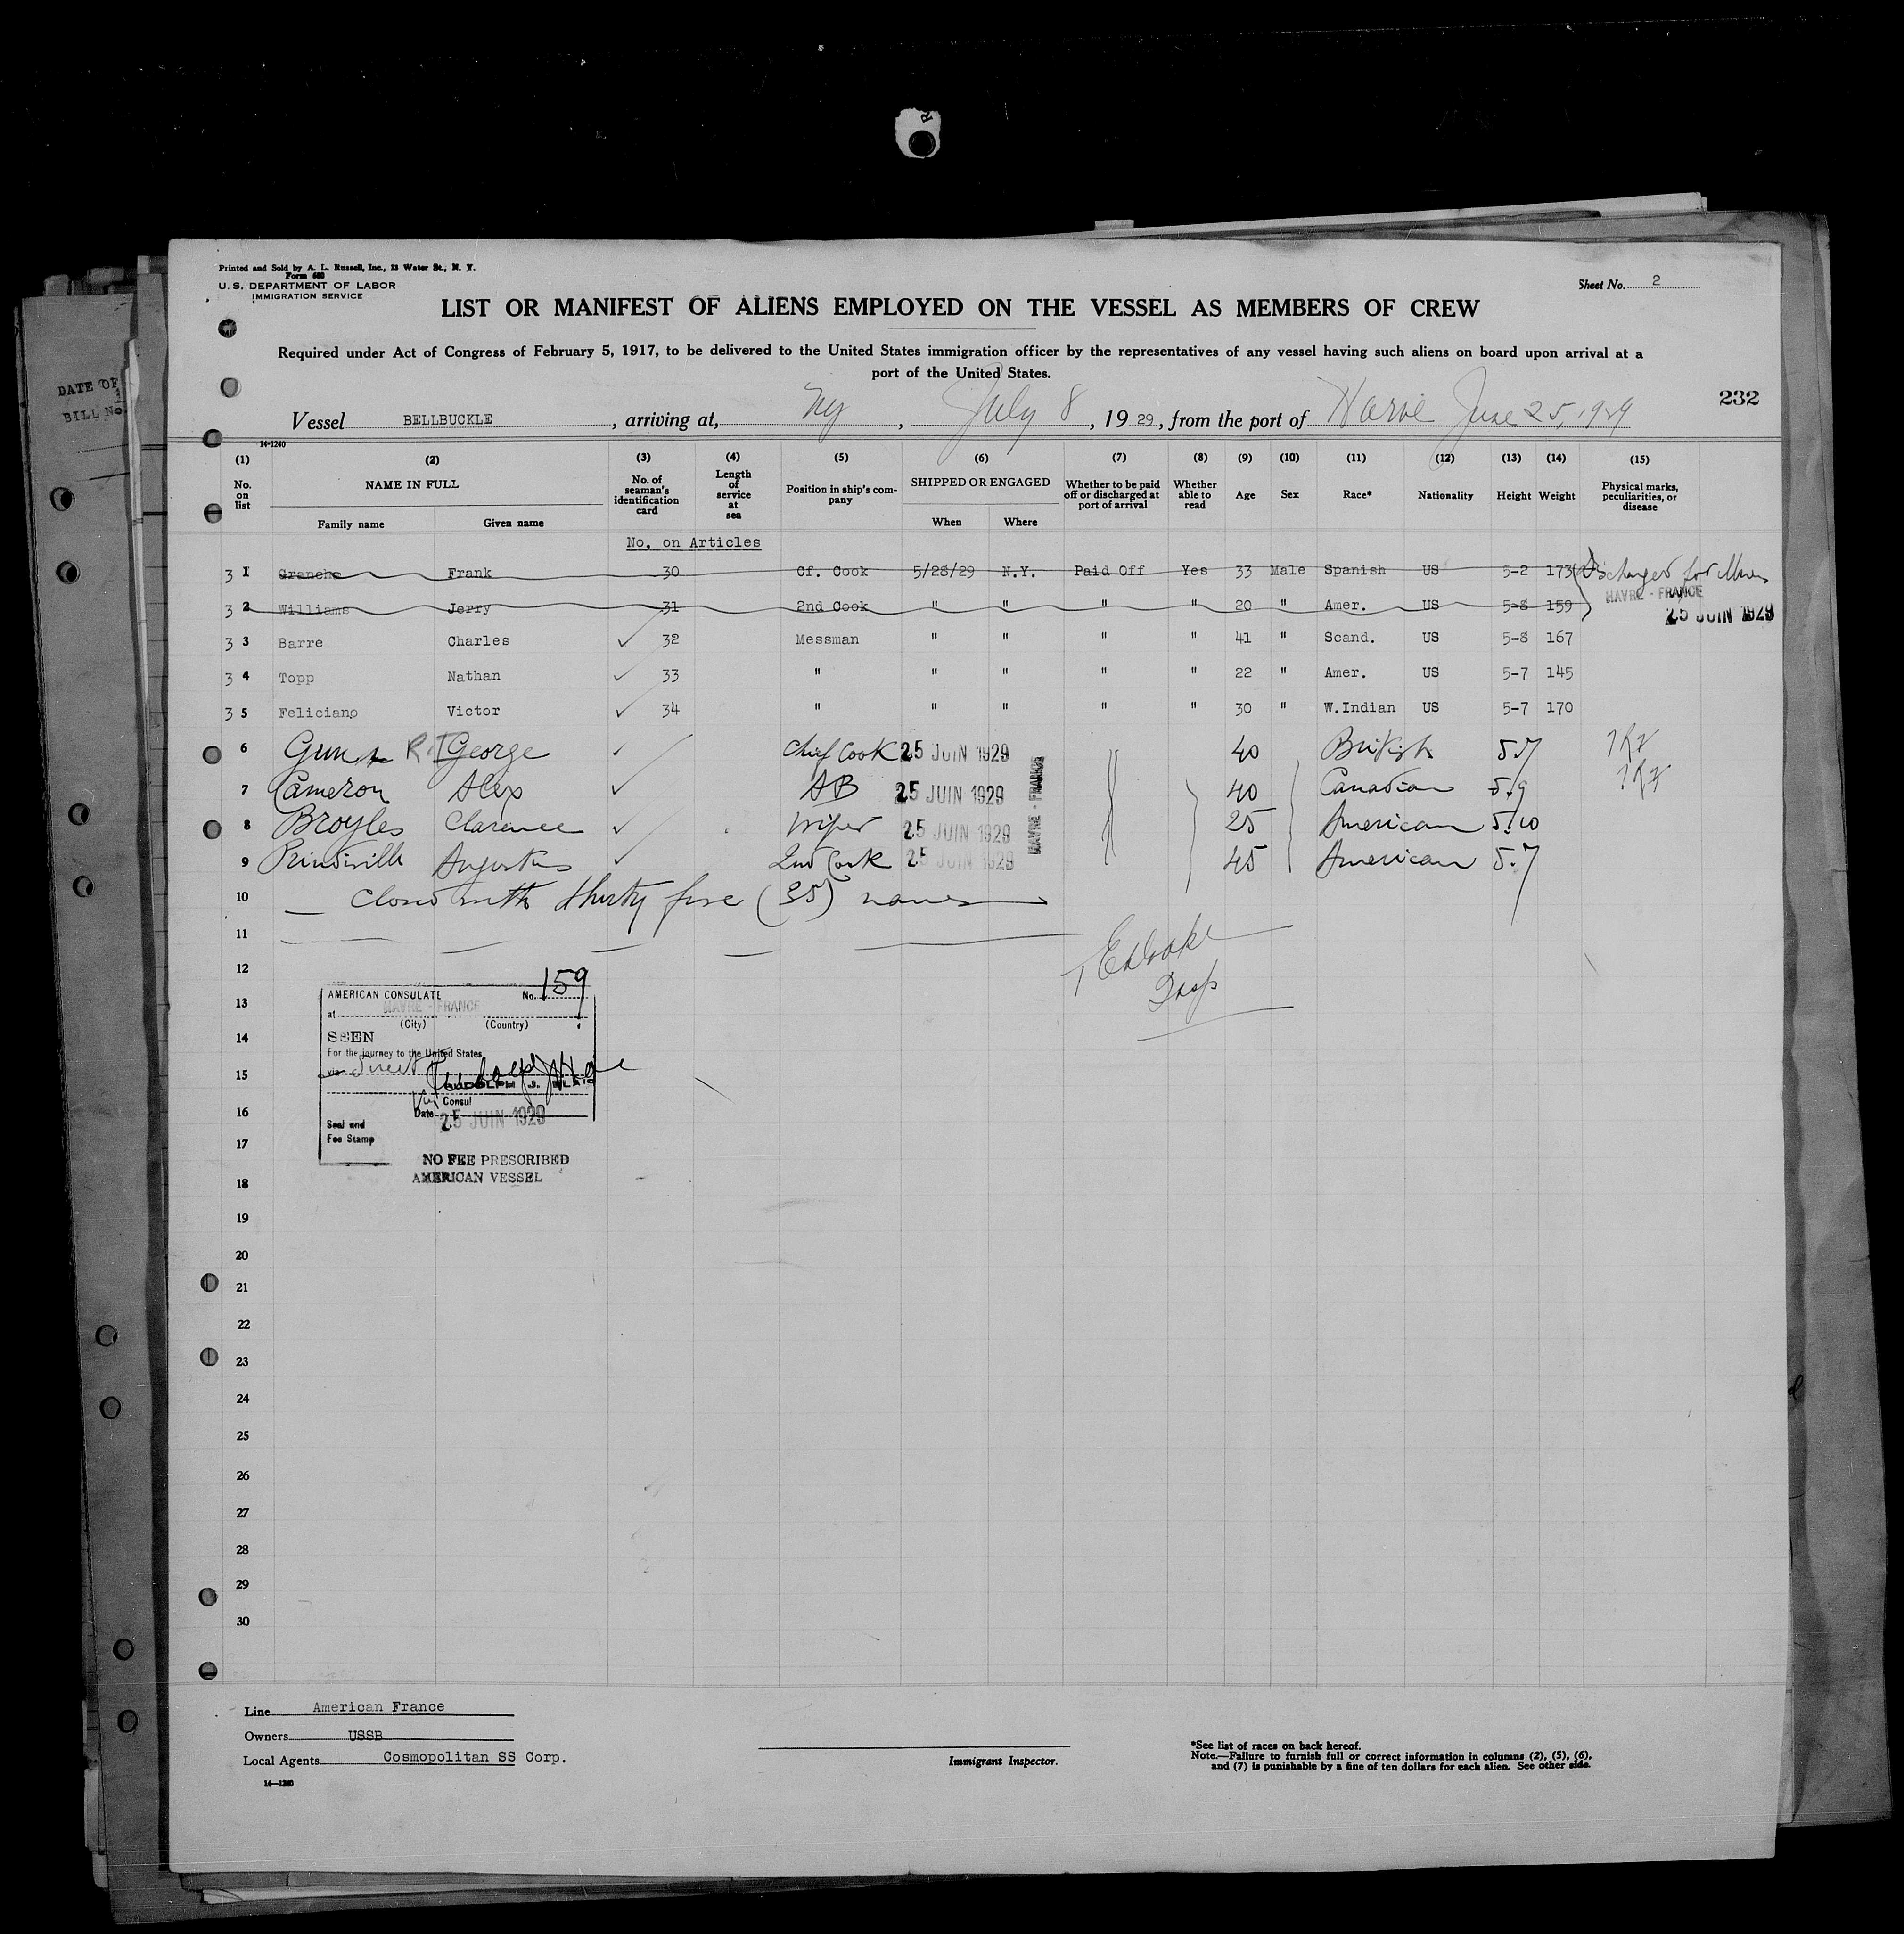 DATE OF
BILL No.
Printed and Sold by A. L. Russell, Inc., 13 Water St., N. Y.
Form 680
U. S. DEPARTMENT OF LABOR
IMMIGRATION SERVICE
Sheet No. 2
LIST OR MANIFEST OF ALIENS EMPLOYED ON THE VESSEL AS MEMBERS OF CREW
Required under Act of Congress of February 5, 1917, to be delivered to the United States immigration officer by the representatives of any vessel having such aliens on board upon arrival at a
port of the United States.
232
Vessel BELLBUCKLE, arriving at, Ny, July 8, 1929, from the port of Havre June 25, 1929
14-1240
(1) (2) (3) (4) (5) (6) (7) (8) (9) (10) (11) (12) (13) (14) (15)
No. on list NAME IN FULL Family name Given name No. of seaman's identification card Length of service at sea Position in ship's company SHIPPED OR ENGAGED When Where Whether to be paid off or discharged at port of arrival Whether able to read Age Sex Race* Nationality Height Weight Physical marks, peculiarities, or disease
No. on Articles
3 1 Franche Frank 30 Cf. Cook 5/28/29 N.Y. Paid Off Yes 33 Male Spanish US 5-2 173 Discharged for
3 2 Williams Jerry 31 2nd Cook " " " " 20 " Amer. US 5-8 159 HAVRE - FRANCE
25 JUIN 1929
3 3 Barre Charles 32 Messman " " " " 41 " Scand. US 5-8 167
3 4 Topp Nathan 33 " " " " " 22 " Amer. US 5-7 145
3 5 Feliciano Victor 34 " " " " " 30 " W.Indian US 5-7 170
6 George Chief Cook 25 JUIN 1929 40 British 5.7
7 Cameron Alex AB 25 JUIN 1929 HAVRE - FRANCE 40 Canadian 5.9
8 Broyles Clarence Wiper 25 JUIN 1929 25 American 5.10
9 Augustus 2nd Cook 25 JUIN 1929 45 American 5.7
10 Closed with thirty five (35) names
11
12
13
14
15
16
17
18
19
20
21
22
23
24
25
26
27
28
29
30
AMERICAN CONSULATE No. 159
at HAVRE - FRANCE
(City) (Country)
SEEN
For the journey to the United States
via Direct
Consul
Date 25 JUIN 1929
Seal and
Fee Stamp
NO FEE PRESCRIBED
AMERICAN VESSEL
Line American France
Owners USSB
Local Agents Cosmopolitan SS Corp.
14-1240
Immigrant Inspector.
*See list of races on back hereof.
Note.—Failure to furnish full or correct information in columns (2), (5), (6),
and (7) is punishable by a fine of ten dollars for each alien. See other side.